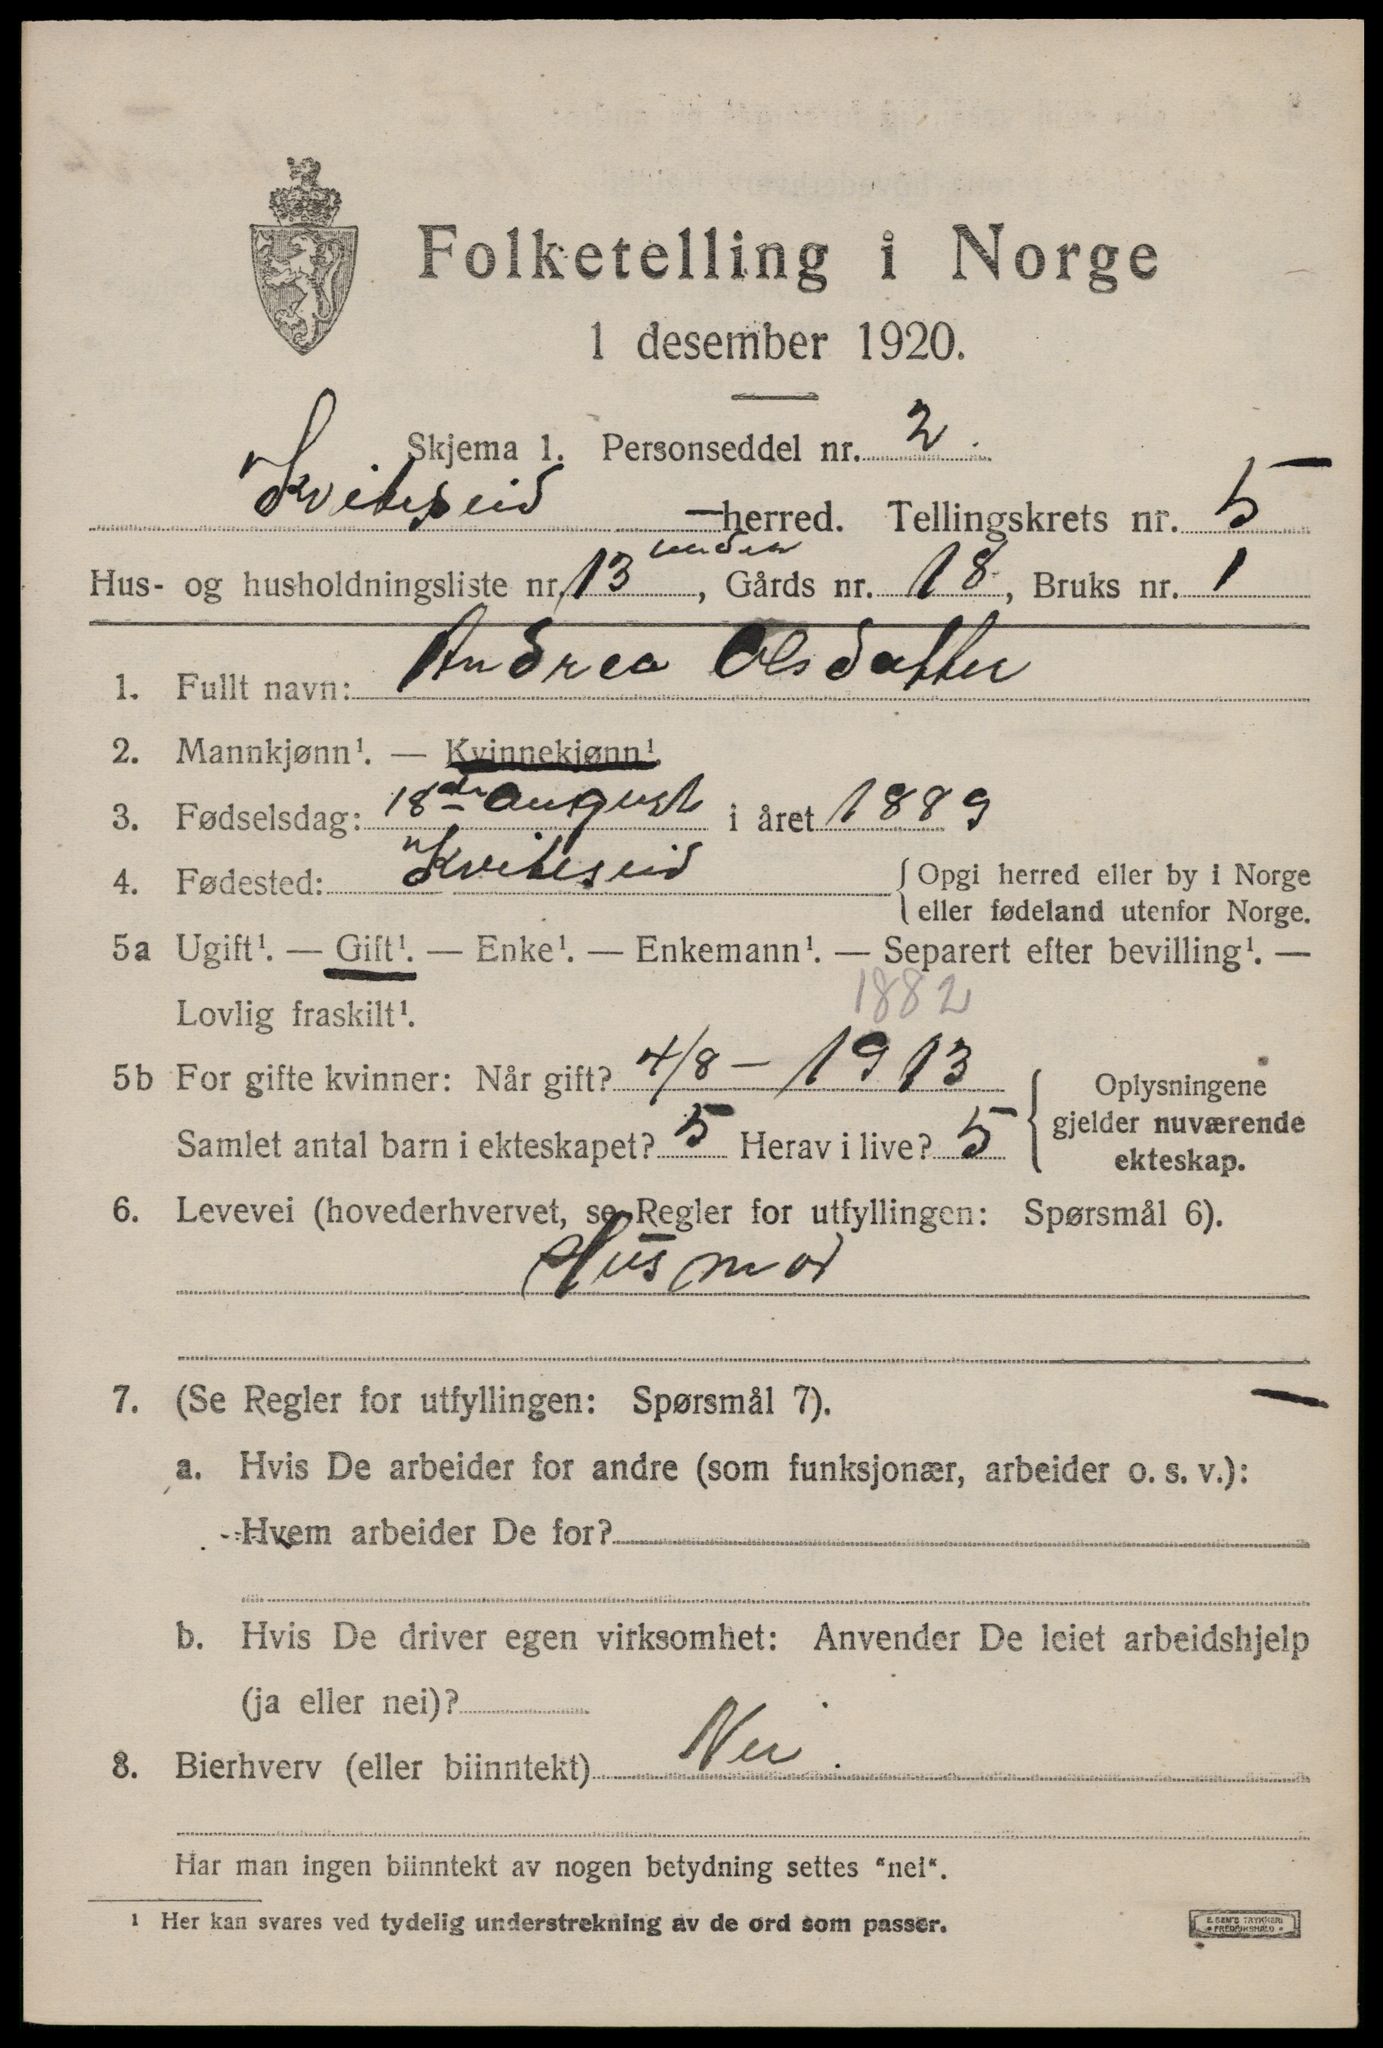 Folketelling i Norge
1 desember 1920.
Skjema 1. Personseddel nr. 2.
Kviteseid herred. Tellingskrets nr. 5
Hus- og husholdningsliste nr. 13 under, Gårds nr. 18, Bruks nr. 1
1. Fullt navn: Andrea Olsdatter
2. Mannkjønn¹. — Kvinnekjønn¹.
3. Fødselsdag: 18de august i året 1889
4. Fødested: Kviteseid { Opgi herred eller by i Norge
eller fødeland utenfor Norge.
5a Ugift¹. — Gift¹. — Enke¹. — Enkemann¹. — Separert efter bevilling¹. —
Lovlig fraskilt¹. 1882
5b For gifte kvinner: Når gift? 4/8 – 1913
Samlet antal barn i ekteskapet? 5 Herav i live? 5
Oplysningene
gjelder nuværende
ekteskap.
6. Levevei (hovederhvervet, se Regler for utfyllingen: Spørsmål 6).
Husmor
7. (Se Regler for utfyllingen: Spørsmål 7). —
a. Hvis De arbeider for andre (som funksjonær, arbeider o. s. v.):
Hvem arbeider De for?
b. Hvis De driver egen virksomhet: Anvender De leiet arbeidshjelp
(ja eller nei)?
8. Bierhverv (eller biinntekt) Nei.
Har man ingen biinntekt av nogen betydning settes "nei".
¹ Her kan svares ved tydelig understrekning av de ord som passer.
E. SEM'S TRYKKERI
• FREDRIKSHALD •